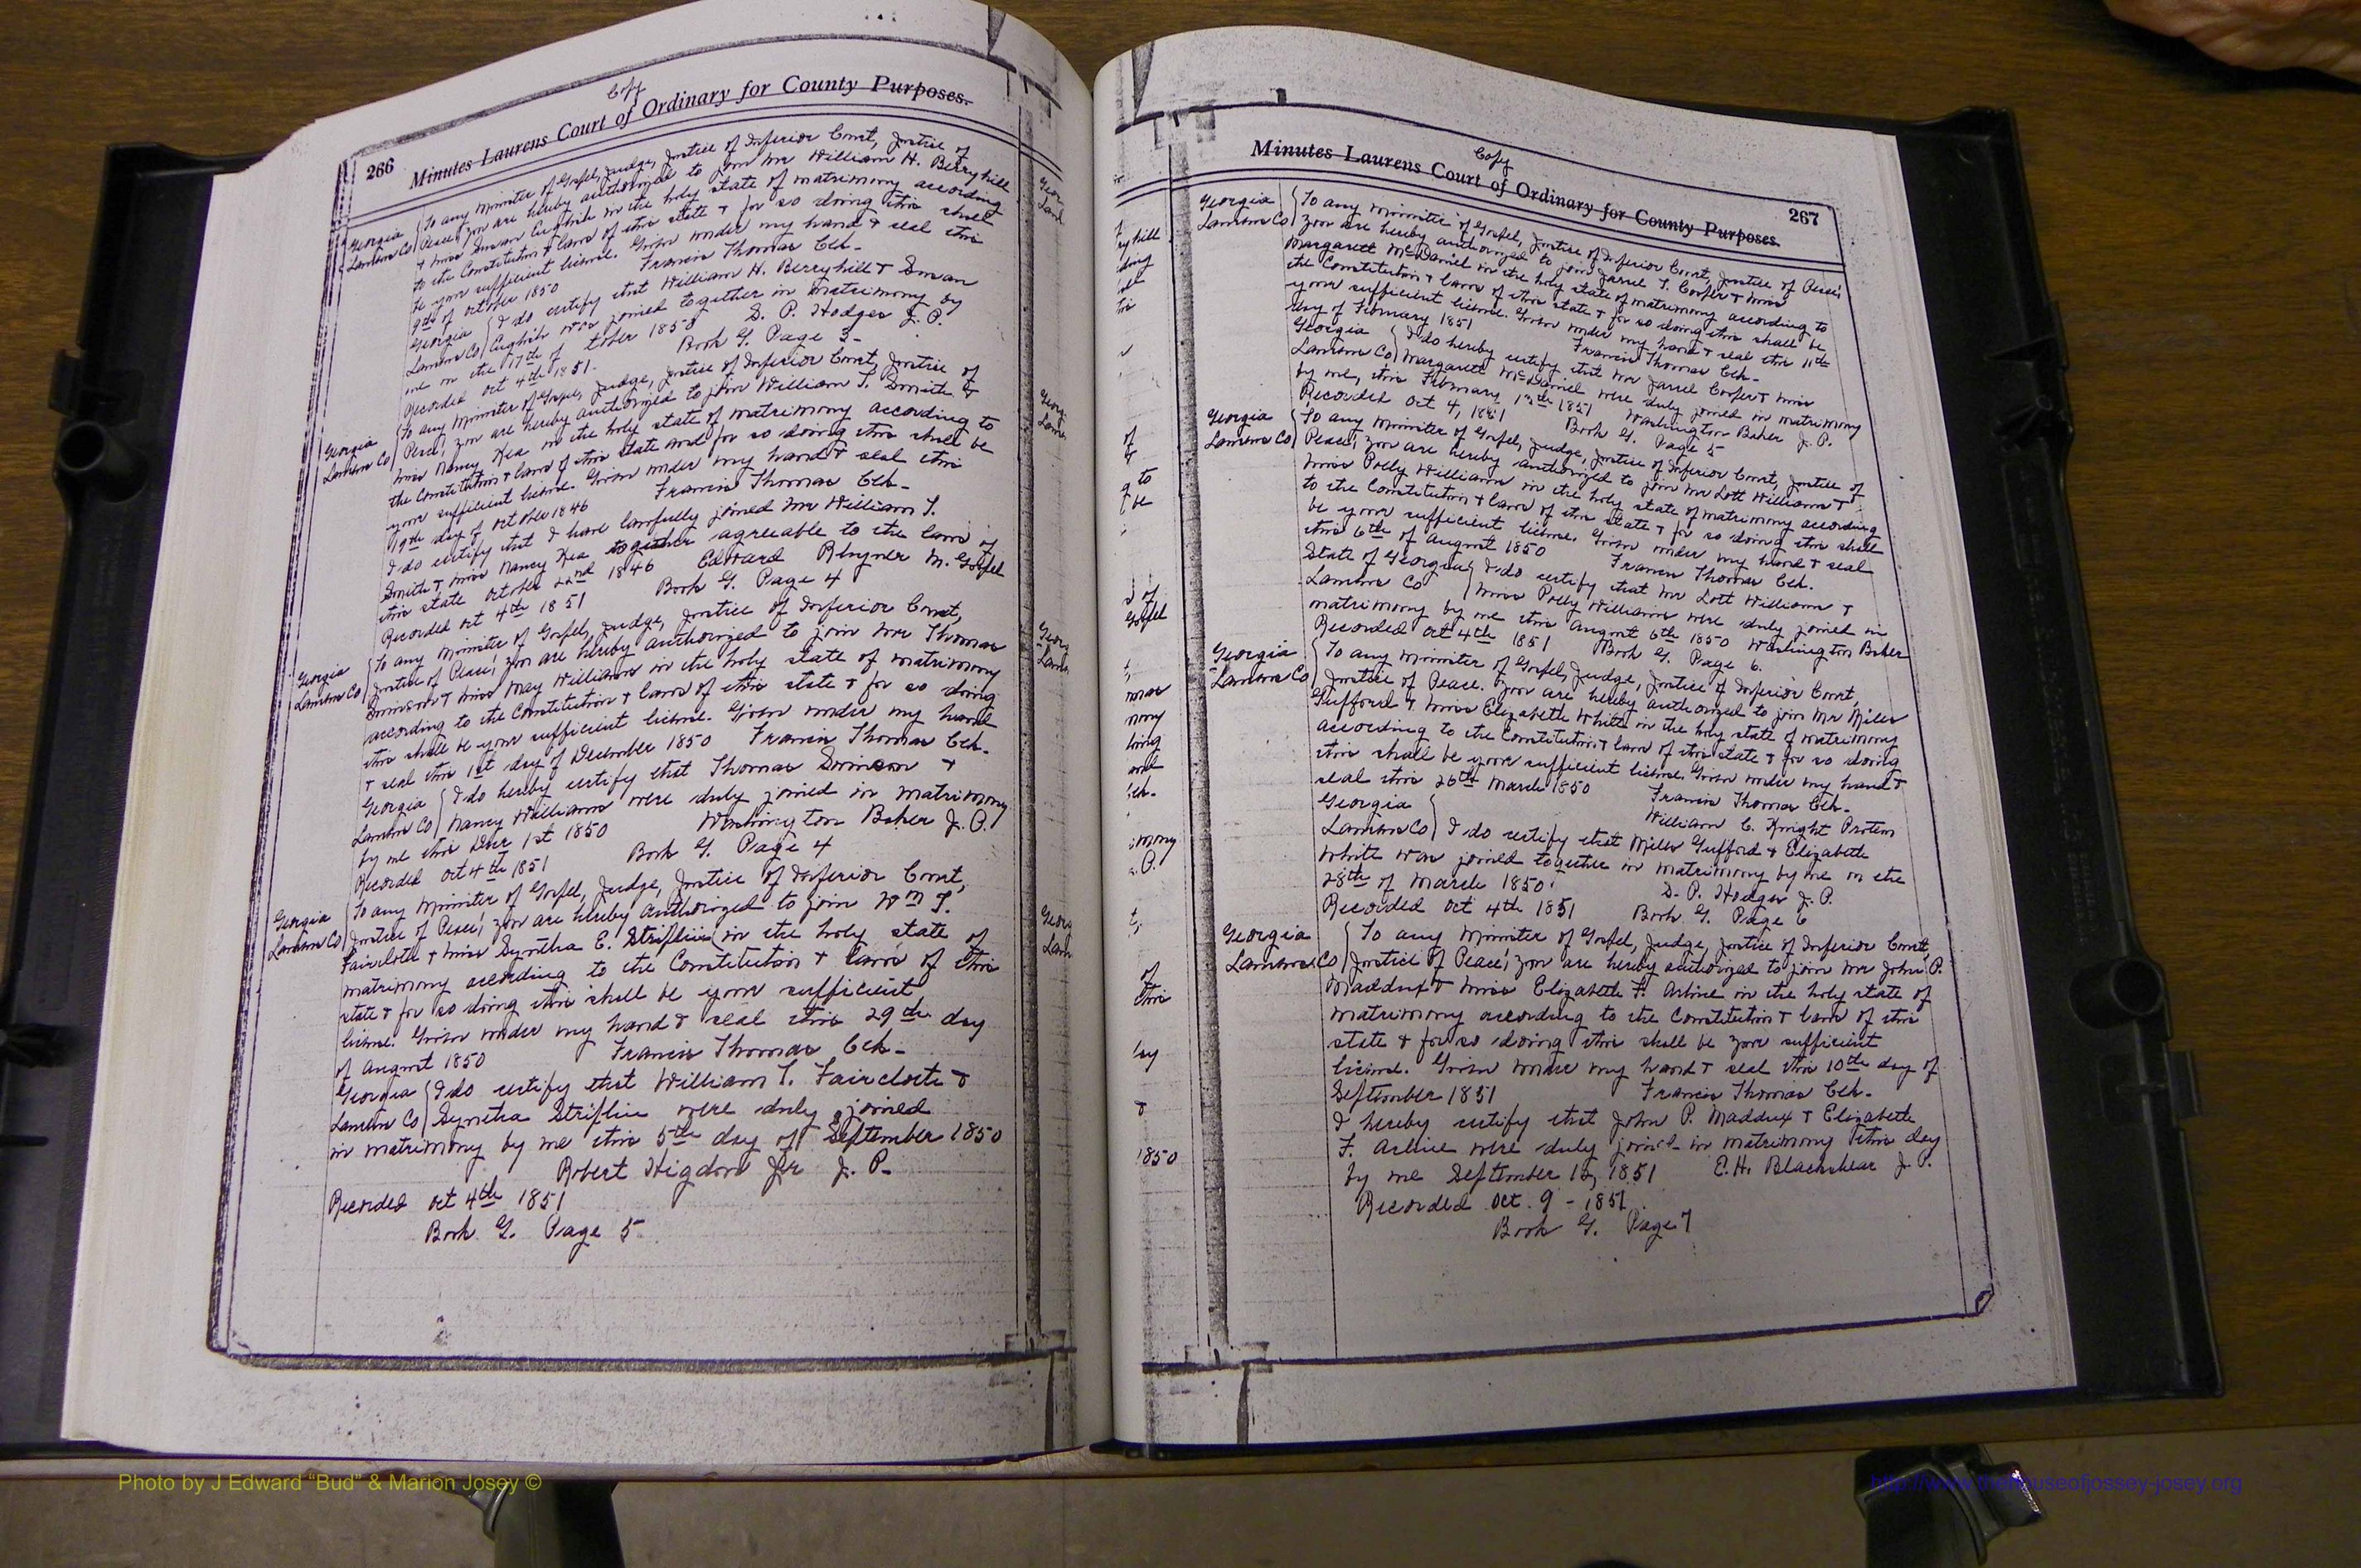 Copy
266 Minutes Laurens Court of Ordinary for County Purposes.
Georgia
Laurens Co
To any Minister of Gospel, Judge, Justice of Inferior Court, Justice of
Peace; you are hereby authorized to join Mr William H. Berryhill
& Miss Susan English in the holy state of matrimony according
to the Constitution & laws of this state & for so doing this shall
be your sufficient license. Given under my hand & seal this
9th of october 1850 Francis Thomas Clk-
Georgia
Laurens Co
I do certify that William H. Berryhill & Susan
English was joined together in matrimony by
me on the 17th of tober 1850 S. P. Hodges J. P.
Recorded oct 4th 1851. Book G. Page 3-
Georgia
Laurens Co
To any Minister of Gospel, Judge, Justice of Inferior Court, Justice of
Peace; you are hereby authorized to join William T. Smith &
Miss Nancy Kea in the holy state of matrimony according to
the Constitution & laws of this state and for so doing this shall be
your sufficient license. Given under my hand & seal this
19th day of october 1846 Francis Thomas Clk-
I do certify that I have lawfully joined Mr William T.
Smith & Miss Nancy Kea together agreable to the laws of
this state october 22nd 1846 Edward M. Gospel
Recorded oct 4th 1851 Book G. Page 4
Georgia
Laurens Co
To any Minister of Gospel, Judge, Justice of Inferior Court,
Justice of Peace; you are hereby authorized to join Mr Thomas
& Miss May Williams in the holy state of matrimony
according to the Constitution & laws of this state & for so doing
this shall be your sufficient license. Given under my hand
& seal this 1st day of December 1850 Francis Thomas Clk-
Georgia
Laurens Co
I do hereby certify that Thomas &
Nancy Williams were duly joined in matrimony
by me this Decr 1st 1850 Washington Baker J. P.
Recorded oct 4th 1851 Book G. Page 4
Georgia
Laurens Co
To any Minister of Gospel, Judge, Justice of Inferior Court,
Justice of Peace; you are hereby authorized to join Wm T.
Faircloth & Miss Syntha E. Striplin in the holy state of
matrimony according to the Constitution & laws of this
state & for so doing this shall be your sufficient
license. Given under my hand & seal this 29th day
of August 1850 Francis Thomas Clk-
Georgia
Laurens Co
I do certify that William T. Faircloth &
Syntha Striplin were duly joined
in matrimony by me this 5th day of September 1850
Robert Higdon Jr J. P.
Recorded oct 4th 1851
Book G. Page 5
Copy
Minutes Laurens Court of Ordinary for County Purposes. 267
Georgia
Laurens Co
To any Minister of Gospel, Justice of Inferior Court, Justice of Peace;
you are hereby authorized to join Jarrel T. Coofer & Miss
Margarett McDaniel in the holy state of matrimony according to
the Constitution & laws of this state & for so doing this shall be
your sufficient license. Given under my hand & seal this 11th
day of February 1851 Francis Thomas Clk-
Georgia
Laurens Co
I do hereby certify that Mr Jarrel Coofer & Miss
Margarett McDaniel were duly joined in matrimony
by me, this February 13th 1851 Washington Baker J. P.
Recorded Oct 4, 1851 Book G. Page 5
Georgia
Laurens Co
To any Minister of Gospel, Judge, Justice of Inferior Court, Justice of
Peace; you are hereby authorized to join Mr Lott Williams &
Miss Polly Williams in the holy state of matrimony according
to the Constitution & laws of this state & for so doing this shall
be your sufficient license. Given under my hand & seal
this 6th of August 1850 Francis Thomas Clk.
State of Georgia
Laurens Co
I do certify that Mr Lott Williams &
Miss Polly Williams were duly joined in
matrimony by me this August 6th 1850 Washington Baker
Recorded oct 4th 1851 Book G. Page 6.
Georgia
Laurens Co
To any Minister of Gospel, Judge, Justice of Inferior Court,
Justice of Peace. You are hereby authorized to join Mr Miller
Gufford & Miss Elizabeth White in the holy state of matrimony
according to the Constitution & laws of this state & for so doing
this shall be your sufficient license. Given under my hand &
seal this 26th March 1850 Francis Thomas Clk-
William C. Knight Protem
Georgia
Laurens Co
I do certify that Miller Gufford & Elizabeth
White was joined together in matrimony by me on the
28th of March 1850. S. P. Hodges J. P.
Recorded oct 4th 1851 Book G. Page 6
Georgia
Laurens Co
To any Minister of Gospel, Judge, Justice of Inferior Court,
Justice of Peace; you are hereby authorized to join Mr John P.
Maddux & Miss Elizabeth F. Arline in the holy state of
matrimony according to the Constitution & laws of this
state & for so doing this shall be your sufficient
license. Given under my hand & seal this 10th day of
September 1851 Francis Thomas Clk-
I hereby certify that John P. Maddux & Elizabeth
F. Arline were duly joined in matrimony this day
by me September 1851 E. H. Blackshear J. P.
Recorded Oct. 9 - 1851.
Book G. Page 7
Photo by J Edward “Bud” & Marion Josey ©
http://www.thehouseofjossey-josey.org